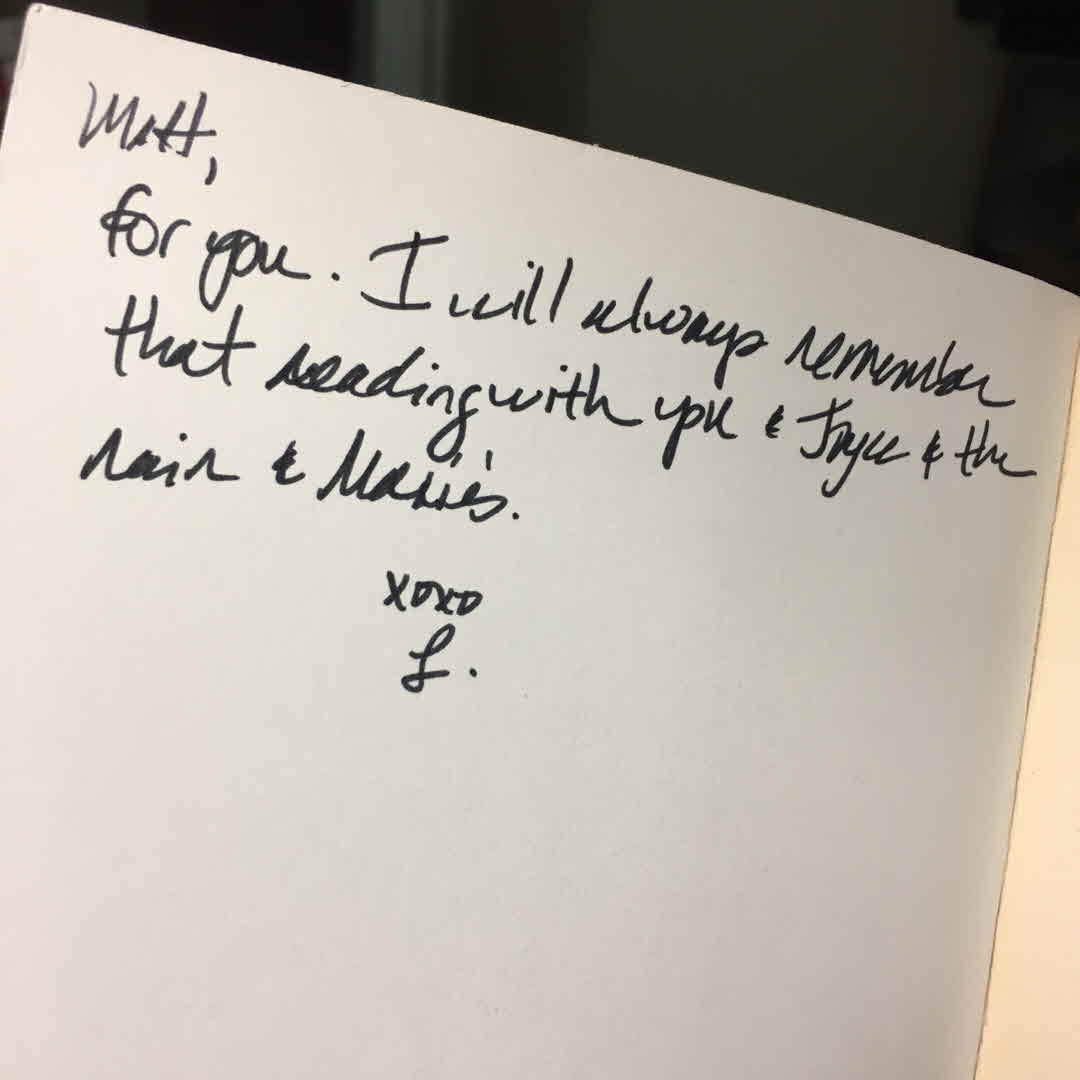 Matt,
for you. I will always remember
that reading with you & Joyce & the
rain & Marie's.
xoxo
L.